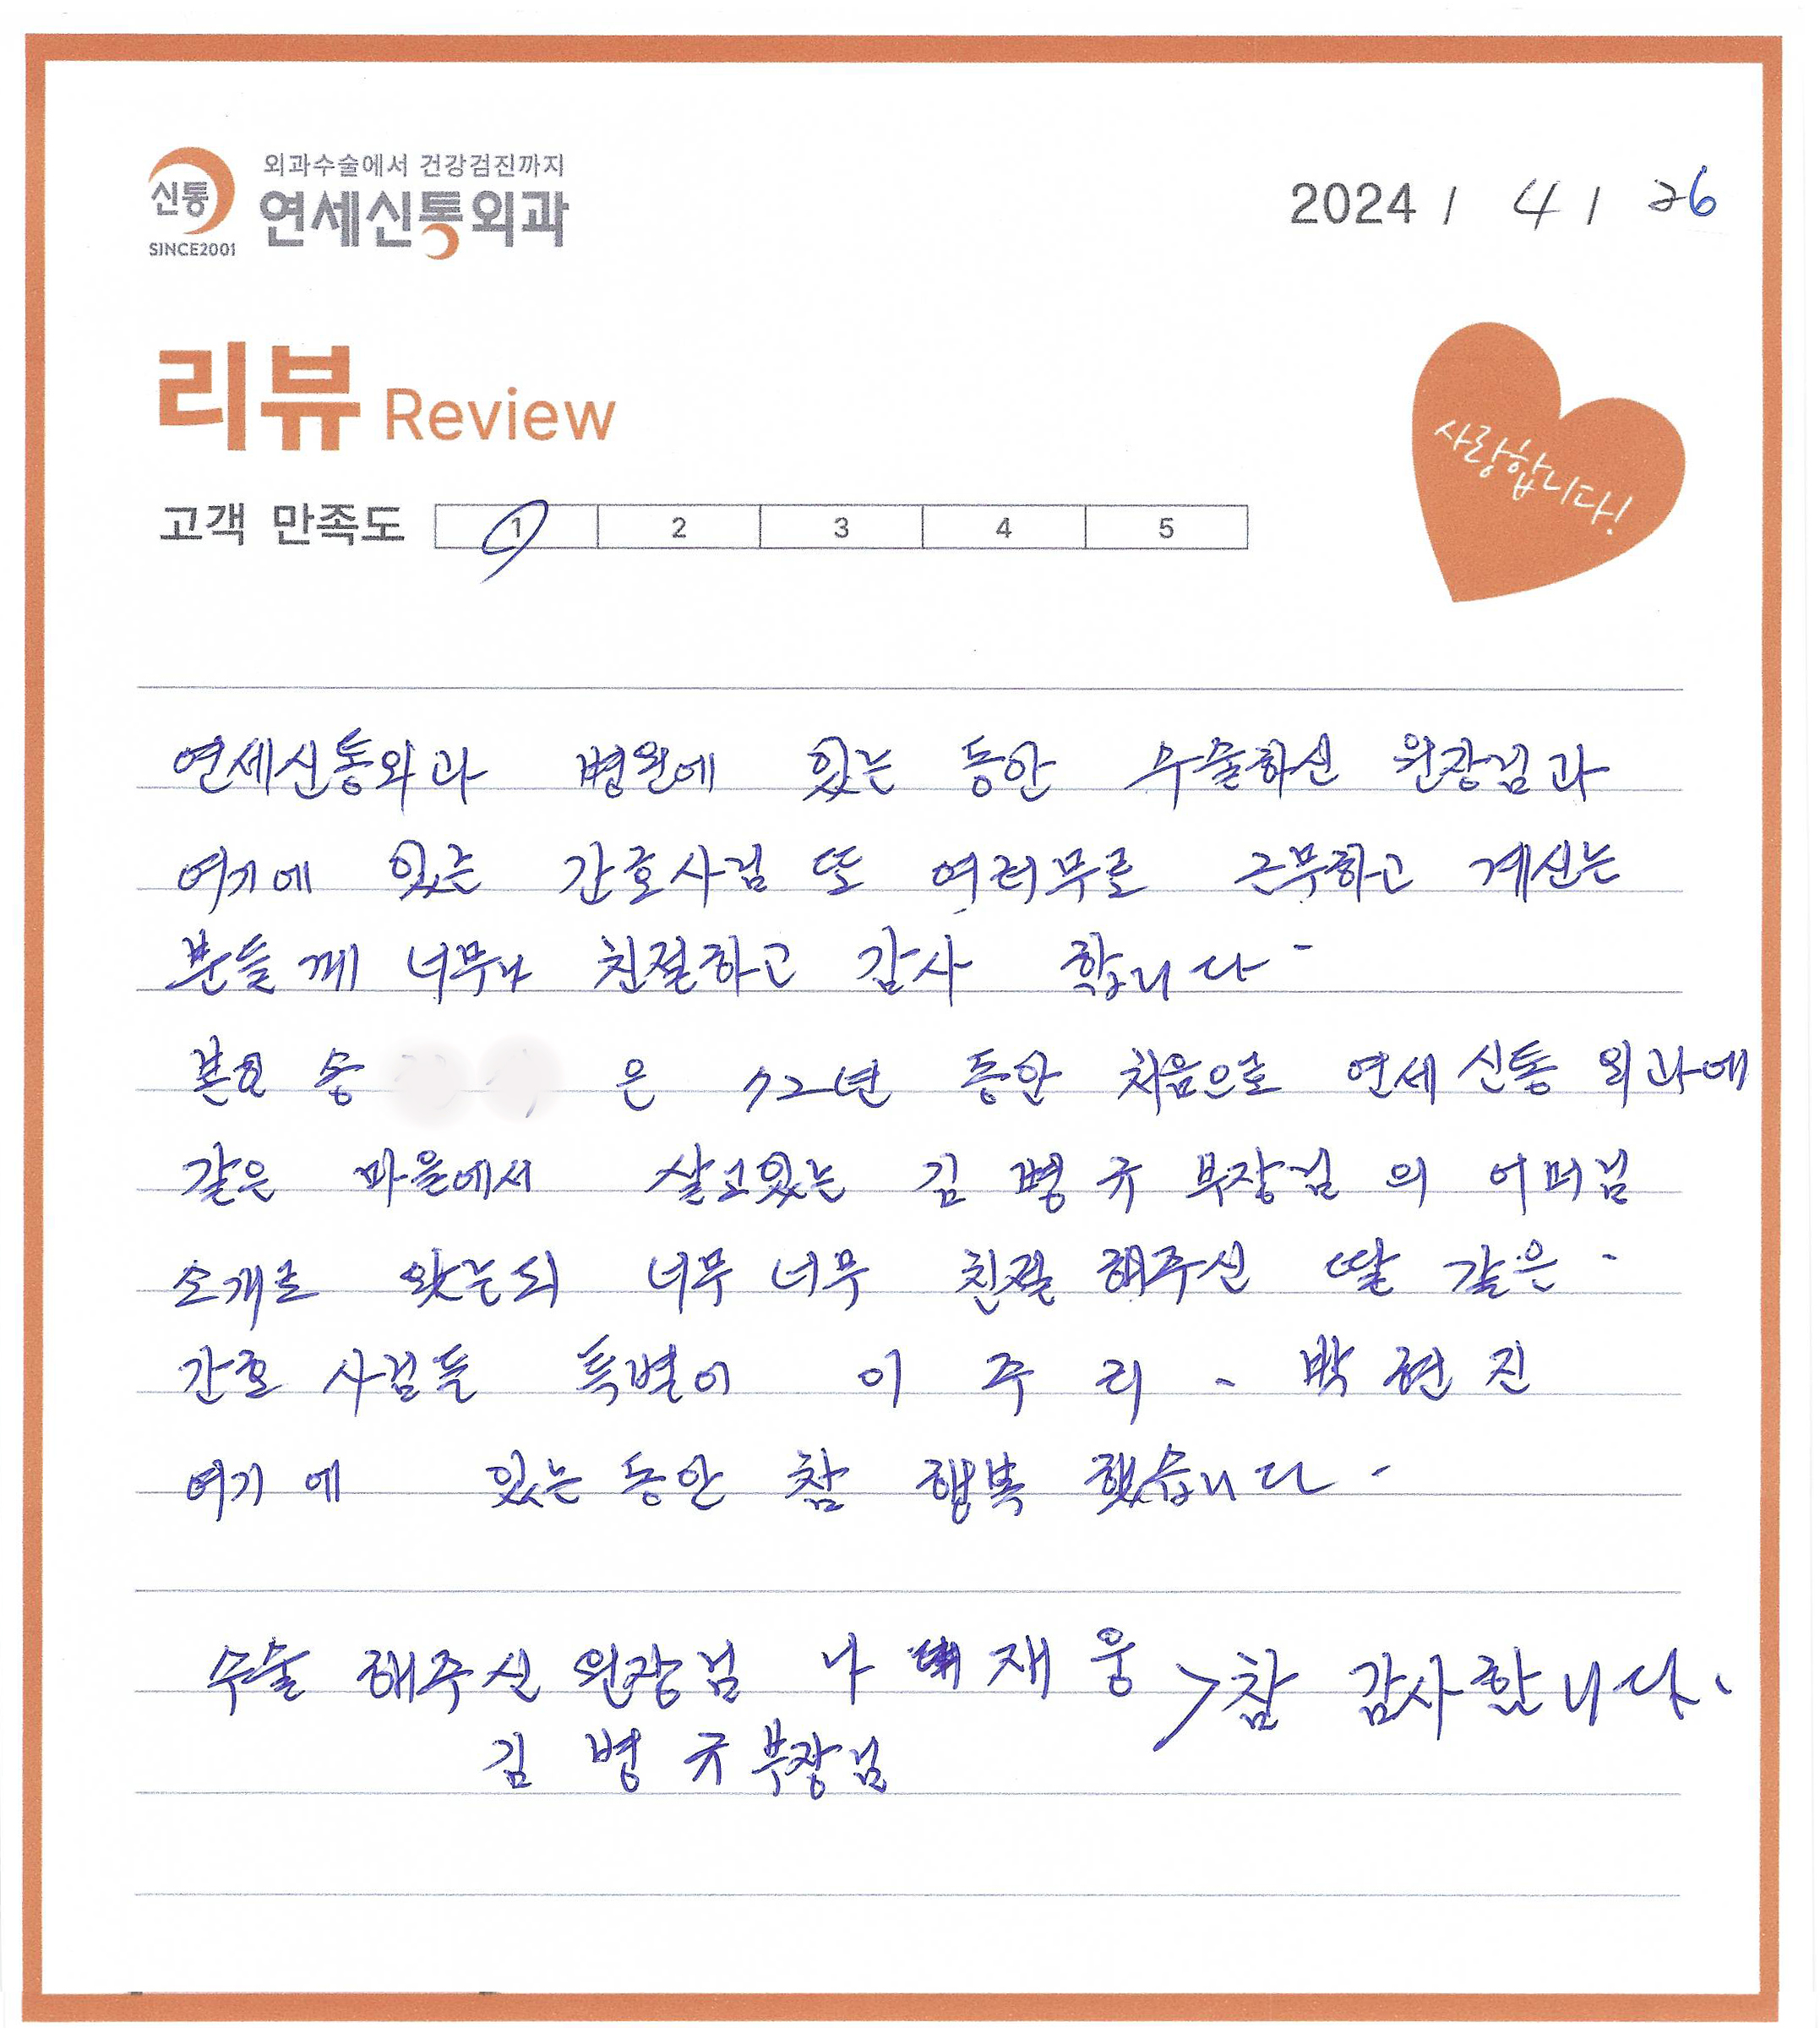 신통
SINCE2001
외과수술에서 건강검진까지
연세신통외과
2024 / 4 / 26
리뷰 Review
사랑합니다!
고객 만족도 1 2 3 4 5
연세신통외과 병원에 있는 동안 수술하신 원장님과
여기에 있는 간호사님 또 여러무로 근무하고 계신는
분들께 너무나 친절하고 감사 합니다
본인 송 은 72년 동안 처음으로 연세 신통 외과에
같은 마을에서 살고있는 김 병 규 부장님 의 어머님
소개로 왔는되 너무 너무 친절 해주신 딸 같은
간호 사님들 특별이 이 주 리 、 박 현 진
여기 에 있는 동안 참 행복 했습니다
수술 해주신 원장님 나 재 웅 > 참 감사합니다.
김 병 규 부장님